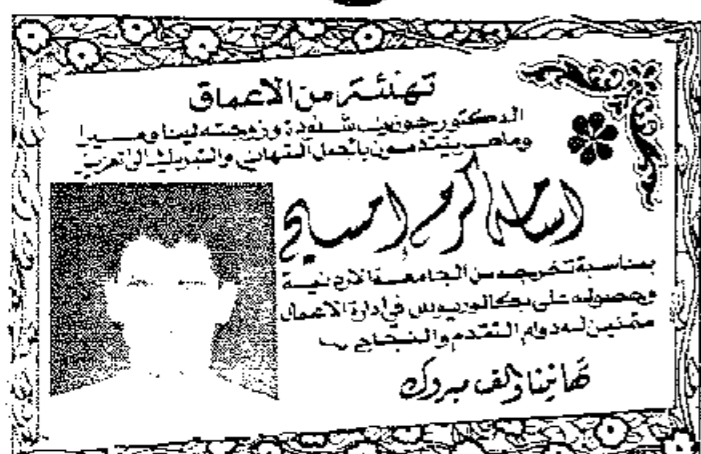 تهنئة من الاعماق
الدكتور جوزيف شلودة وزوجته لينا وميرا
وماهر يتقدمون باجمل التهاني والتبريك الى العزيز
اسامة كرم امسيح
بمناسبة تخرجه من الجامعة الاردنية
وحصوله على بكالوريوس في ادارة الاعمال
متمنين له دوام التقدم والنجاح
تهانينا والف مبروك